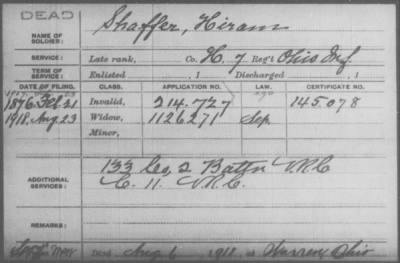 DEAD
NAME OF SOLDIER: Shaffer, Hiram
SERVICE: Late rank, Co. H. 7 Reg't Ohio Inf.
TERM OF SERVICE: Enlisted , 1 Discharged , 1
DATE OF FILING. CLASS. APPLICATION NO. LAW. CERTIFICATE NO.
1876 Feb. 21 Invalid, 214.727 145078
1918. Aug 23 Widow, 1126271 Sep
Minor,
ADDITIONAL SERVICES: 133 Co, 2 Batt'n V.R.C
C. 11. V.R.C.
REMARKS:
Died Aug 6 1918, at Warren, Ohio